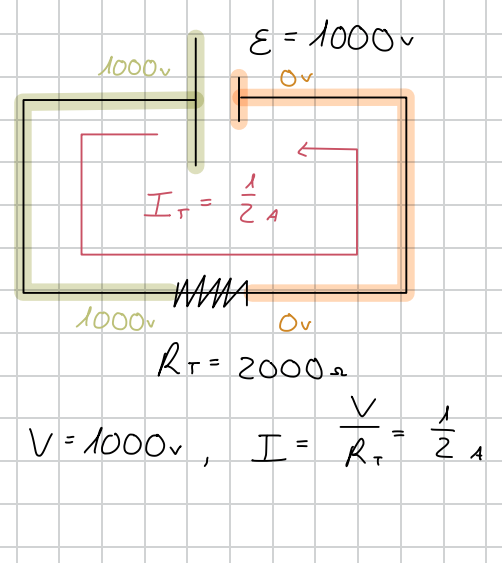 ε = 1000v
1000v
0v
I_T = 1/2 A
1000v
0v
R_T = 2000Ω
V = 1000v, I = V/R_T = 1/2 A